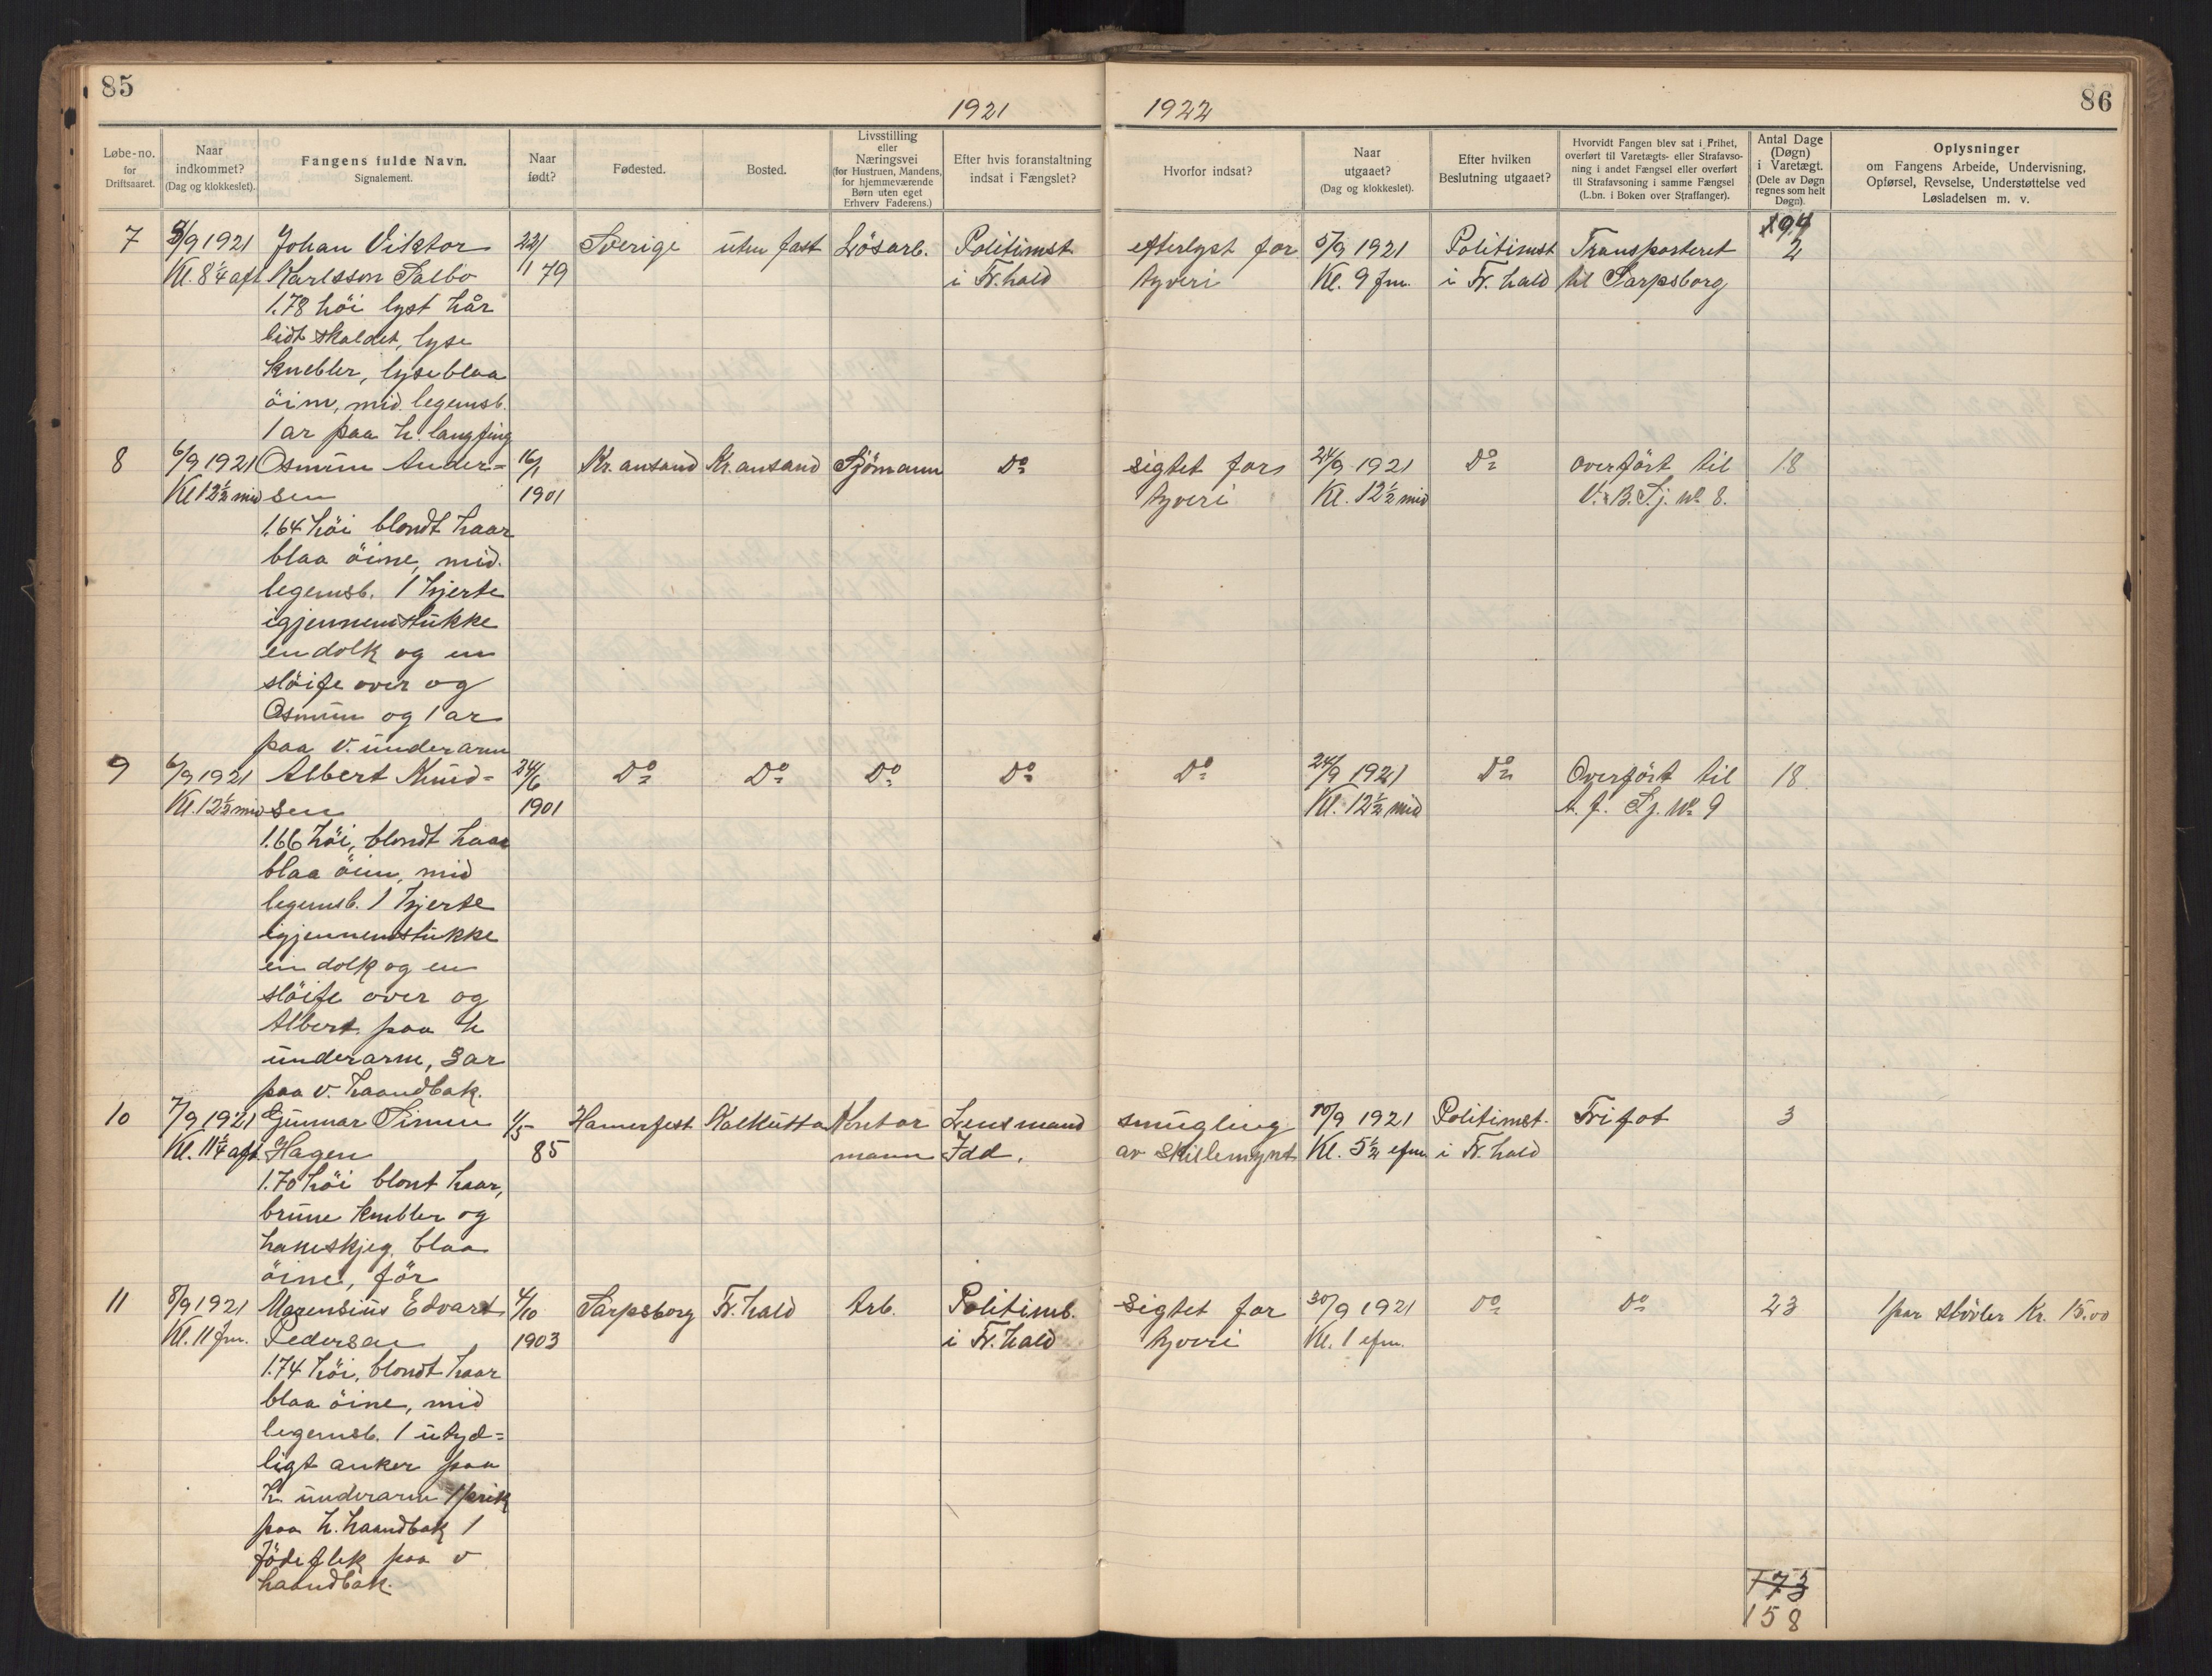 85
1921
1922
86
Løbe-no. for Driftsaaret.
Naar indkommet? (Dag og klokkeslet).
Fangens fulde Navn. Signalement.
Naar født?
Fødested.
Bosted.
Livsstilling eller Næringsvei (for Hustruen, Mandens, for hjemmeværende Børn uten eget Erhverv Faderens.)
Efter hvis foranstaltning indsat i Fængslet?
Hvorfor indsat?
Naar utgaaet? (Dag og klokkeslet).
Efter hvilken Beslutning utgaaet?
Hvorvidt Fangen blev sat i Frihet, overført til Varetægts- eller Strafavsoning i andet Fængsel eller overført til Strafavsoning i samme Fængsel (L.bn. i Boken over Straffanger).
Antal Dage (Døgn) i Varetægt. (Dele av Døgn regnes som helt Døgn).
Oplysninger om Fangens Arbeide, Undervisning, Opførsel, Revselse, Understøttelse ved Løsladelsen m. v.
7 /9 1921 Johan Viktor 22/ Sverige uten fast Lösarb. Politimst efterlyst for 5/9 1921 Politimst Transporteret 2
Kl. 8¼ aft Karlsson Salbo 11 79 i Fr.hald tyveri Kl. 9 fm. i Fr. hald til Sarpsborg
1.78 höi lyst hår
lidt skaldet, lyse
knebler, lyseblaa
öine, mid. legemsb.
1 ar paa h. langfing
8 6/9 1921 Osmün Ander= 16/1 Kr.ansand Kr.ansand Sjömann Do sigtet for tyveri 24/9 1921 Do overfört til 18
Kl 12½ mid sen 1901 Kl. 12½ mid V. B. Fj. No. 8.
1.64 höi blondt haar
blaa öine, mid.
legemsb. 1 hjerte
igjennemstükke
en dolk og en
slöife over og
Osmün og 1 ar
paa v. ünderarm
9 6/9 1921 Albert Knüd= 24/6 Do Do Do Do Do 24/9 1921 Do Overfört til 18
Kl. 12½ mid sen 1901 Kl. 12½ mid A. f. Fj. No 9
1.66 höi, blondt haar
blaa öine, mid
legemsb. 1 hjerte
igjennemstükke
en dolk og en
slöife over og
Albert paa h
ünderarm, 3 ar
paa v. haandbak.
10 7/9 1921 Günnar Simen 1/5 Hamerfest Kalkütta Kontor Lensmand smügling 10/9 1921 Politimst. Fri fot 3
Kl. 11¼ aft. Hagen 85 mann Idd. av skillemynt Kl. 5½ efm i Fr. hald
1.70 höi blont haar,
brüne knebler og
hakeskjeg, blaa
öine, för
11 8/9 1921 Magensiüs Edvart 4/10 Sarpsborg Fr. hald Arb. Politimb. sigtet for 30/9 1921 Do Do 23 1 par stövler Kr. 15.00
Kl. 11 fm. Pedersen 1903 i Fr. hald tyveri Kl. 1 efm.
1.74 höi, blondt haar
blaa öine, mid
legemsb. 1 ütyd=
ligt anker paa
h. ünderarm 1 prik
paa h. haandbak 1
födeflek paa v
haandbak.
173
158